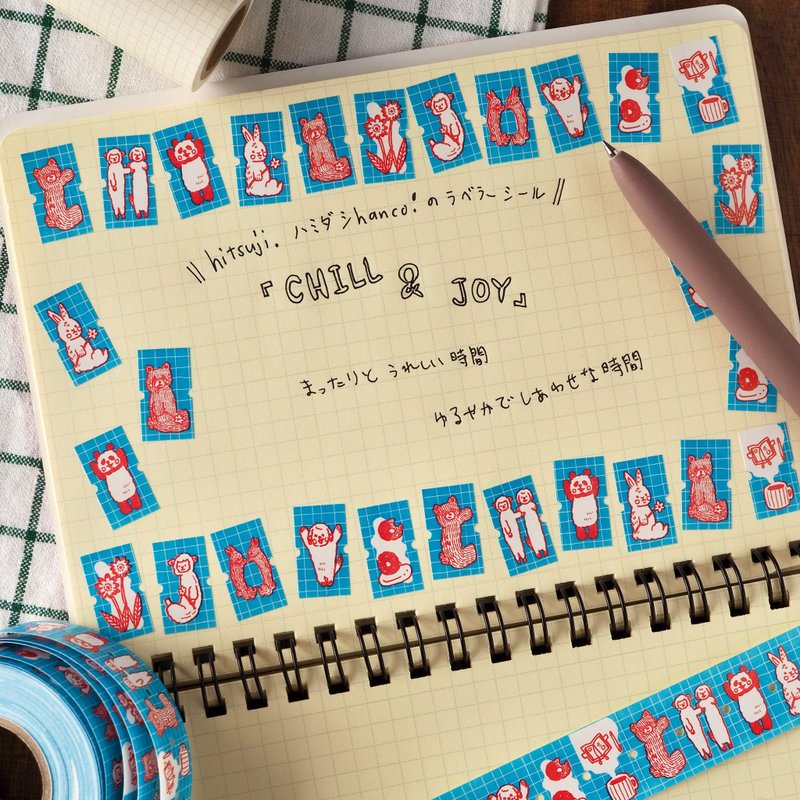 \\ hitsuji. ハミダシhanco!のラベラーシール //
『CHILL & JOY』
まったりと うれしい時間
ゆるやかで しあわせな時間